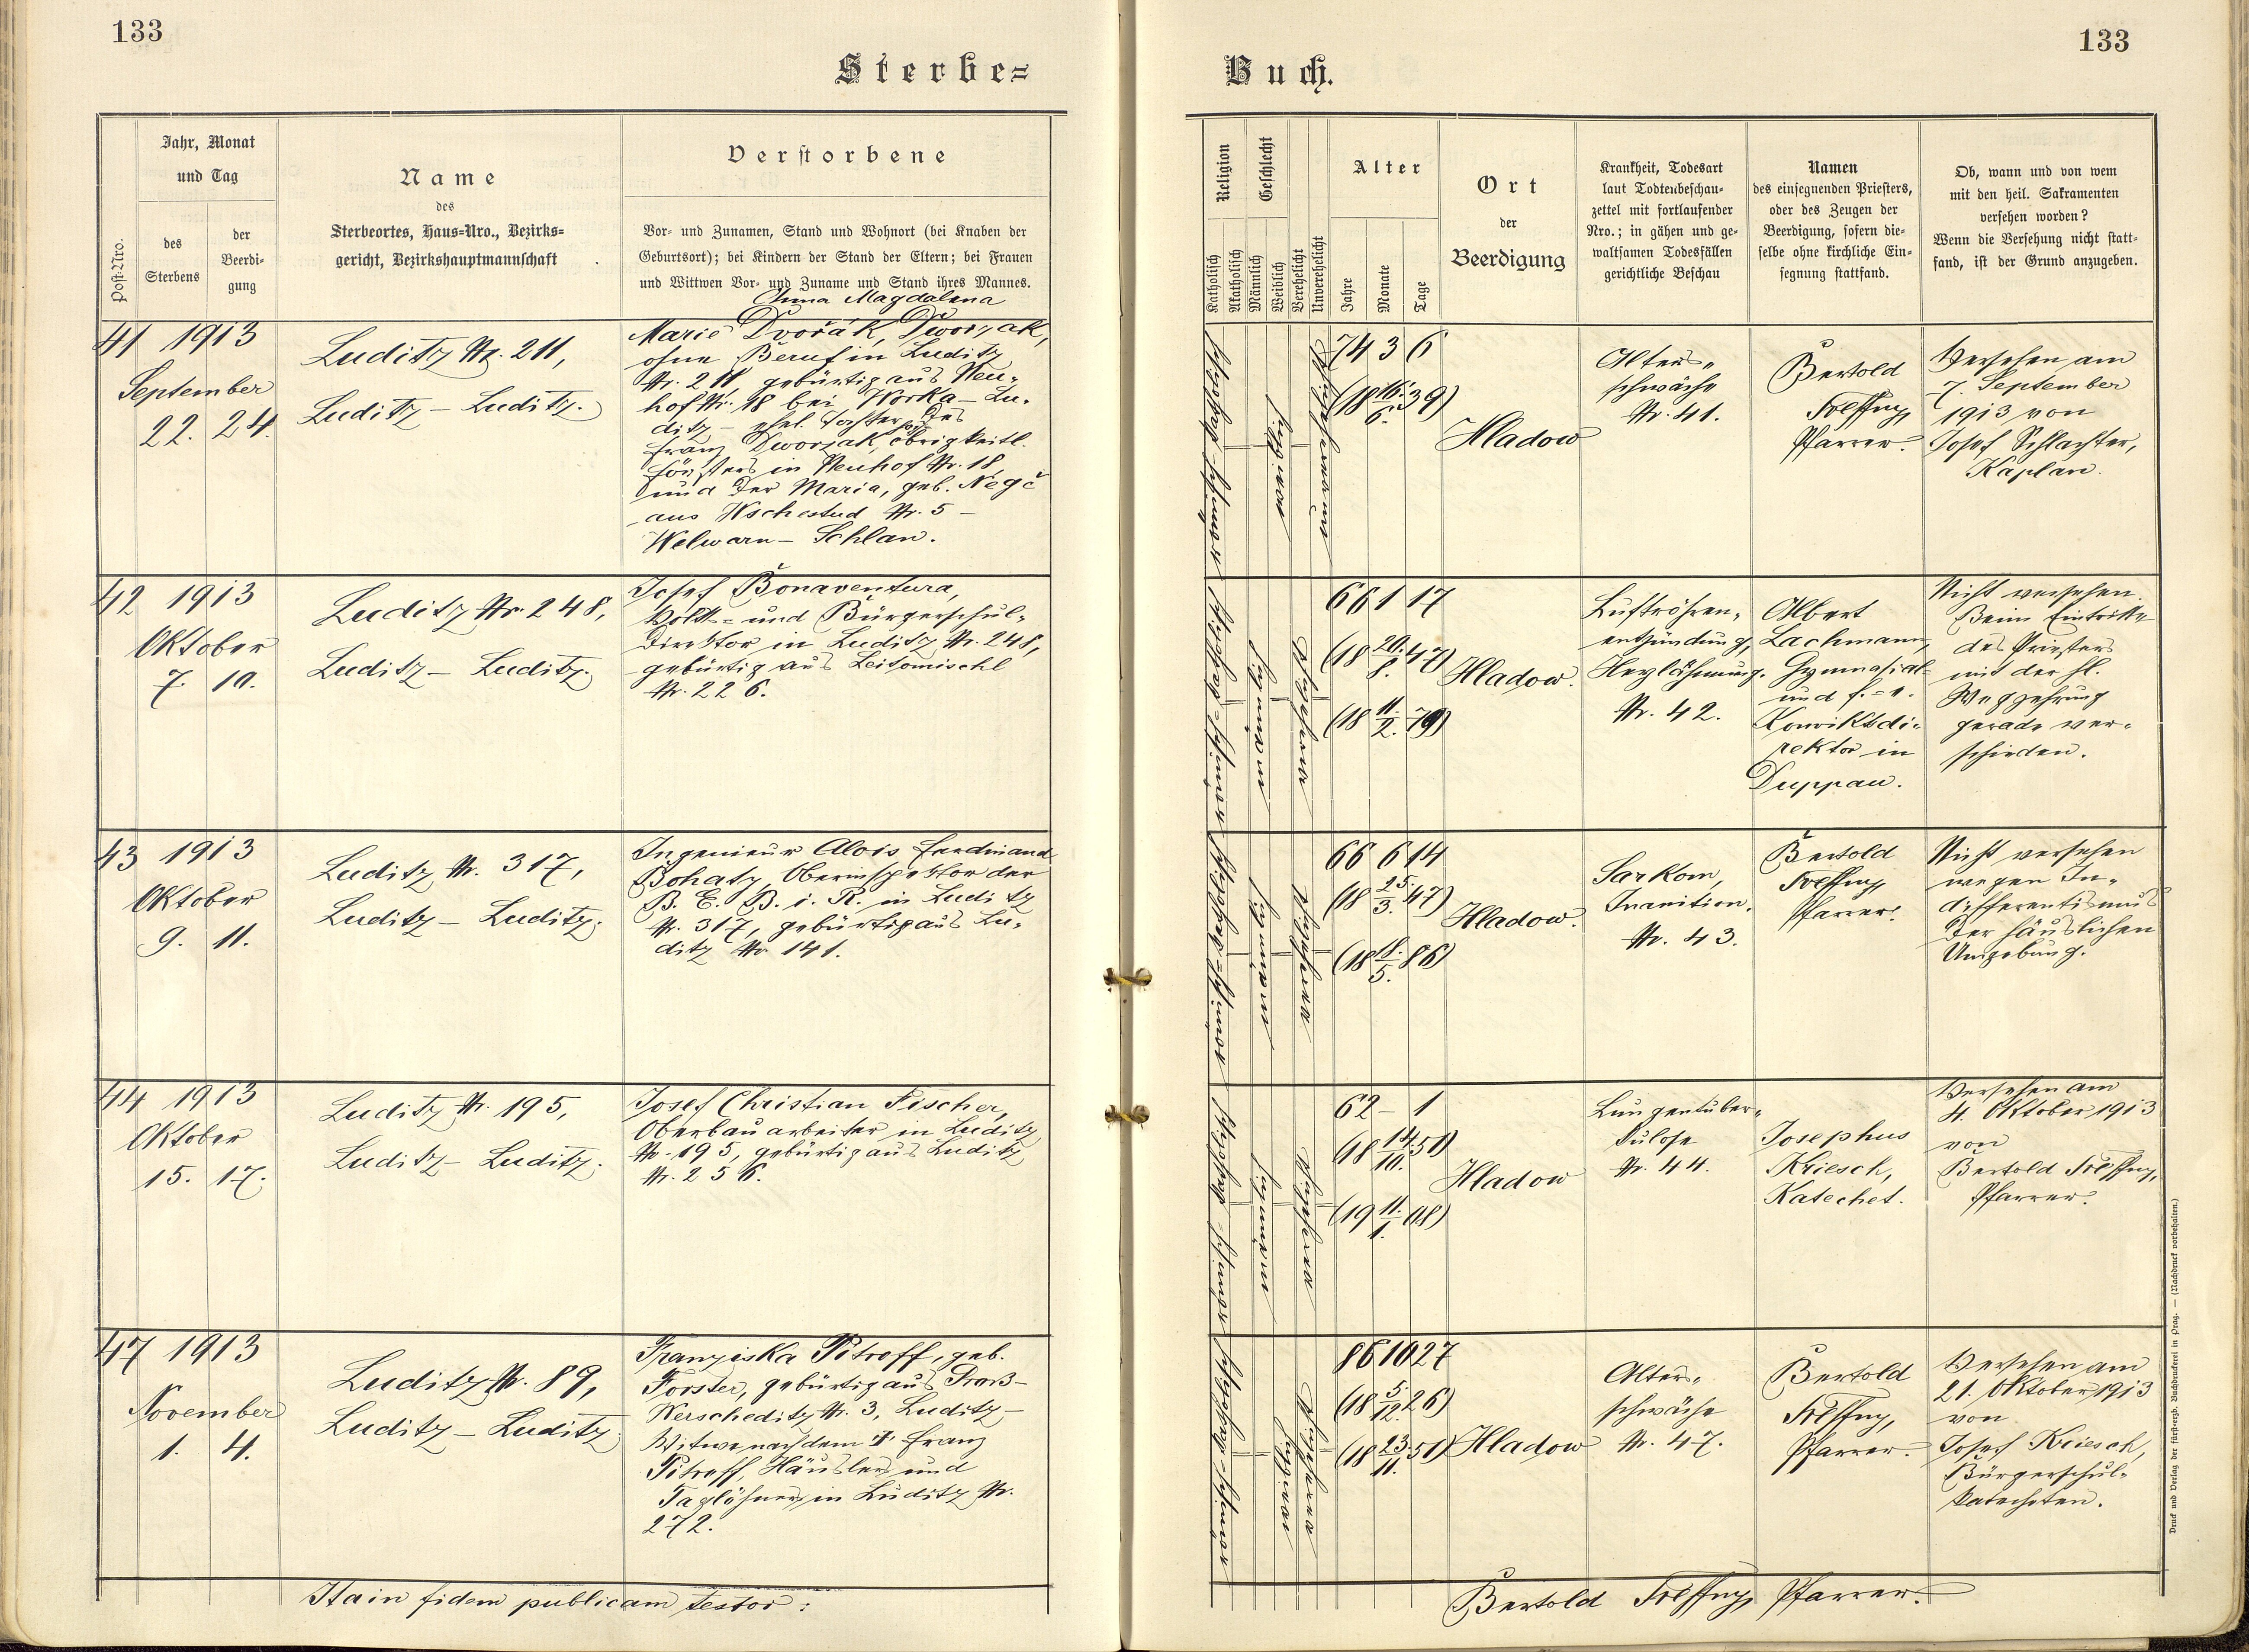 133
Sterbe=
Jahr, Monat
und Tag
Post-Nro.
des
Sterbens
der
Beerdi-
gung
Name
des
Sterbeortes, Haus-Nro., Bezirks-
gericht, Bezirkshauptmannschaft
Verstorbene
Vor- und Zunamen, Stand und Wohnort (bei Knaben der
Geburtsort); bei Kindern der Stand der Eltern; bei Frauen
und Wittwen Vor- und Zuname und Stand ihres Mannes.
41 1913
September
22. 24.
Luditz Nr. 211,
Luditz – Luditz.
Anna Magdalena
Marie Dvořák, Dworzak,
ohne Beruf in Luditz
Nr. 211, gebürtig aus Neu-
hof Nr. 18 bei Worka – Lu-
ditz – ehel. Tochter des
Franz Dworzak, obrigkeitl.
Försters in Neuhof Nr. 18,
und der Maria, geb.
aus Wschestud Nr. 5 –
Welwarn – Schlan.
42 1913
Oktober
7. 10.
Luditz Nr. 248,
Luditz – Luditz.
Josef Bonaventura,
Volks- und Bürgerschul-
direktor in Luditz Nr. 248,
gebürtig aus Leitomischl
Nr. 226.
43 1913
Oktober
9. 11.
Luditz Nr. 317,
Luditz – Luditz.
Ingenieur Alois Ferdinand
Bohaty, Oberinspektor der
B. E. B. i. R. in Luditz
Nr. 317, gebürtig aus Lu-
ditz Nr. 141.
44 1913
Oktober
15. 17.
Luditz Nr. 195,
Luditz – Luditz.
Josef Christian Fischer,
Oberbauarbeiter in Luditz
Nr. 195, gebürtig aus Luditz
Nr. 256.
47 1913
November
1. 4.
Luditz Nr. 89,
Luditz – Luditz.
Franziska Pitroff, geb.
Forster, gebürtig aus Groß-
Werscheditz Nr. 3, Luditz –
Witwe nach dem † Franz
Pitroff, Häusler und
Taglöhner in Luditz Nr.
272.
Ita in fidem publicam testor:
133
Buch.
Religion
Katholisch
Akatholisch
Geschlecht
Männlich
Weiblich
Verehelicht
Unverehelicht
Alter
Jahre
Monate
Tage
Ort
der
Beerdigung
Krankheit, Todesart
laut Todtenbeschau-
zettel mit fortlaufender
Nro.; in gähen und ge-
waltsamen Todesfällen
gerichtliche Beschau
Namen
des einsegnenden Priesters,
oder des Zeugen der
Beerdigung, sofern die-
selbe ohne kirchliche Ein-
segnung stattfand.
Ob, wann und von wem
mit den heil. Sakramenten
versehen worden?
Wenn die Versehung nicht statt-
fand, ist der Grund anzugeben.
74 3 6
(18 16./6. 39)
Hladow
Alters-
schwäche
Nr. 41.
Bertold
Pfarrer.
Versehen am
7. September
1913 von
Josef Schlachter,
Kaplan.
66 1 17
(18 20./8. 47)
(18 11./2. 79)
Hladow.
Luftröhren-
entzündung,
Herzlähmung.
Nr. 42.
Albert
Lachmann,
Gymnasial-
und f.-e.
Konviktsdi-
rektor in
Duppau.
Nicht versehen.
Beim Eintritte
des Priesters
mit der hl.
Wegzehrung
gerade ver-
schieden.
66 6 14
(18 25./3. 47)
(18 18./5. 86)
Hladow.
Sarkom,
Inanition.
Nr. 43.
Bertold
Pfarrer.
Nicht versehen
wegen In-
differentismus
der häuslichen
Umgebung.
62 – 1
(18 14./10. 51)
(19 11./1. 08)
Hladow
Lungentuber-
kulose
Nr. 44.
Josephus
Kriesch,
Katechet.
Versehen am
4. Oktober 1913
von
Bertold
Pfarrer.
86 10 27
(18 5./12. 26)
(18 23./11. 51)
Hladow
Alters-
schwäche
Nr. 47.
Bertold
Pfarrer.
Versehen am
21. Oktober 1913
von
Josef Kriesch,
Bürgerschul-
katecheten.
Bertold
Pfarrer.
Druck und Verlag der fürst-erzb. Buchdruckerei in Prag. — (Nachdruck vorbehalten.)